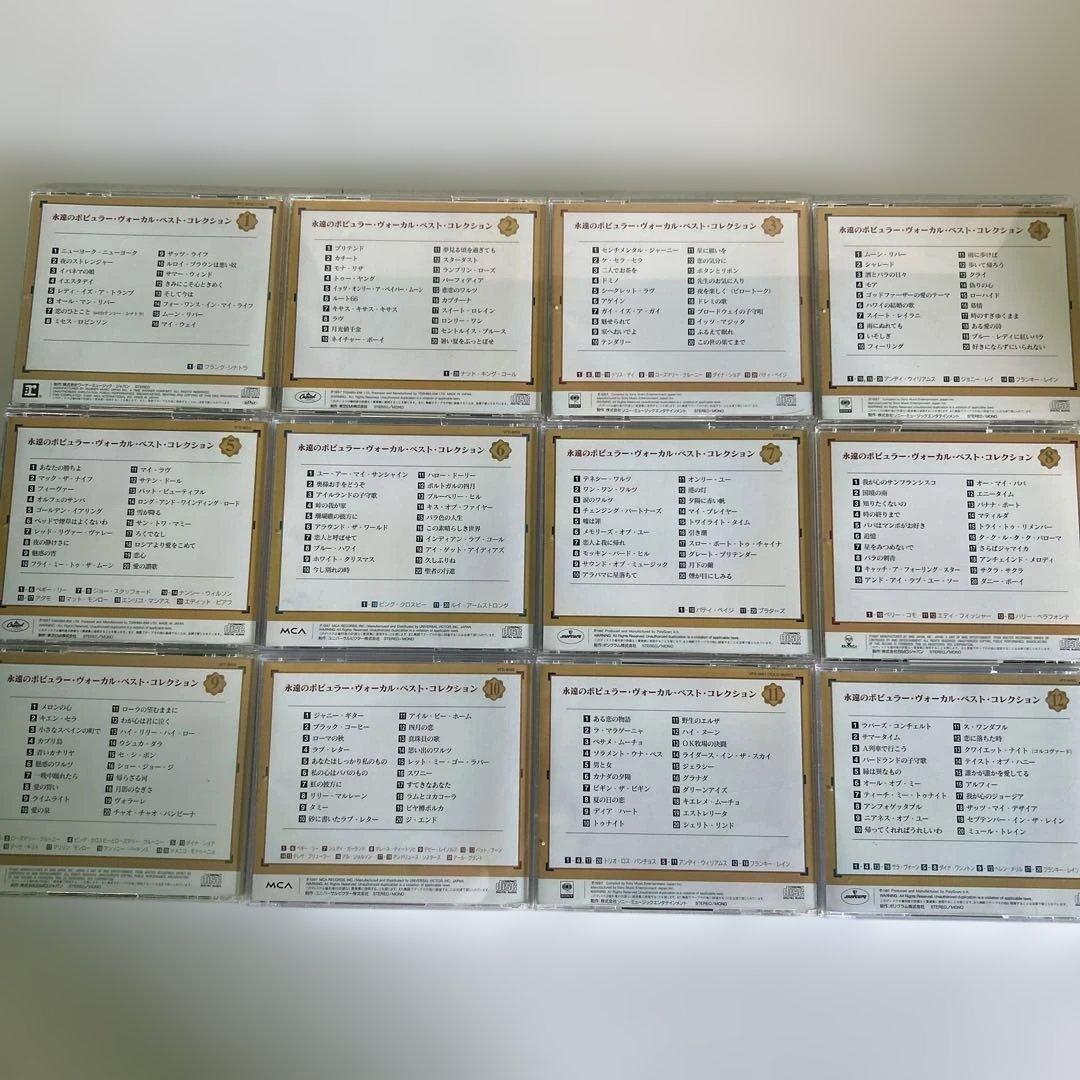 永遠のポピュラー・ヴォーカル・ベスト・コレクション 1
1 ニューヨーク・ニューヨーク
2 夜のストレンジャー
3 イパネマの娘
4 イエスタデイ
5 レディ・イズ・ア・トランプ
6 オール・マン・リバー
7 恋のひとこと
8 ミセス・ロビンソン
9 ザッツ・ライフ
10 ルロイ・ブラウンは悪い奴
11 サマー・ウィンド
12 きみにこそ心ときめく
13 そして今は
14 フォー・ワンス・イン・マイ・ライフ
15 ムーン・リバー
16 マイ・ウェイ
1-16 フランク・シナトラ
永遠のポピュラー・ヴォーカル・ベスト・コレクション 2
1 プリテンド
2 カチート
3 モナ・リザ
4 トゥー・ヤング
5 イッツ・オンリー・ア・ペイパー・ムーン
6 ルート66
7 キサス・キサス・キサス
8 ラヴ
9 月光値千金
10 ネイチャー・ボーイ
11 夢見る頃を過ぎても
12 スターダスト
13 ランブリン・ローズ
14 パーフィディア
15 恋恋のワルツ
16 カプチーナ
17 スイート・ロレイン
18 ロンリー・ワン
19 セントルイス・ブルース
20 暑い夏をぶっとばせ
1-20 ナット・キング・コール
Capitol
永遠のポピュラー・ヴォーカル・ベスト・コレクション 3
1 センチメンタル・ジャーニー
2 ケ・セラ・セラ
3 二人でお茶を
4 ドミノ
5 シークレット・ラヴ
6 アゲイン
7 ガイ・イズ・ア・ガイ
8 魅せられて
9 家へおいでよ
10 テンダリー
11 星に願いを
12 恋の気分に
13 ボタンとリボン
14 先生のお気に入り
15 夜を楽しく（ピロートーク）
16 ドレミの歌
17 ブロードウェイの子守唄
18 イッツ・マジック
19 ふるえて眠れ
20 この世の果てまで
永遠のポピュラー・ヴォーカル・ベスト・コレクション 4
1 ムーン・リバー
2 シャレード
3 酒とバラの日々
4 モア
5 ゴッドファーザーの愛のテーマ
6 ハワイの結婚の歌
7 スイート・レイラニ
8 雨にぬれても
9 いそしぎ
10 フィーリング
11 雨に歩けば
12 歩いて帰ろう
13 クライ
14 偽りの心
15 ローハイド
16 慕情
17 時のすぎゆくまま
18 ある愛の詩
19 ブルー・レディに紅いバラ
20 好きにならずにいられない
永遠のポピュラー・ヴォーカル・ベスト・コレクション 5
1 あなたの勝ちよ
2 マック・ザ・ナイフ
3 フィーヴァー
4 オルフェのサンバ
5 ゴールデン・イアリング
6 ベッドで煙草はよくないわ
7 レッド・リヴァー・ヴァレー
8 夜の静けさに
9 魅惑の宵
10 フライ・ミー・トゥ・ザ・ムーン
11 マイ・ラヴ
12 サテン・ドール
13 バット・ビューティフル
14 ロング・アンド・ワインディング・ロード
15 雪が降る
16 サン・トワ・マミー
17 ろくでなし
18 ロシアより愛をこめて
19 恋心
20 愛の讃歌
Capitol
永遠のポピュラー・ヴォーカル・ベスト・コレクション 6
1 ユー・アー・マイ・サンシャイン
2 奥様お手をどうぞ
3 アイルランドの子守歌
4 峠の我が家
5 珊瑚礁の彼方に
6 アラウンド・ザ・ワールド
7 恋人と呼ばせて
8 ブルー・ハワイ
9 ホワイト・クリスマス
10 今し別れの時
11 ハロー・ドーリー
12 ポルトガルの四月
13 ブルーベリー・ヒル
14 キス・オブ・ファイヤー
15 バラ色の人生
16 この素晴らしき世界
17 インディアン・ラブ・コール
18 アイ・ゲット・アイディアズ
19 久しぶりね
20 聖者の行進
1-10 ビング・クロスビー 11-20 ルイ・アームストロング
MCA
永遠のポピュラー・ヴォーカル・ベスト・コレクション 7
1 テネシー・ワルツ
2 ワン・ワン・ワルツ
3 涙のワルツ
4 チェンジング・パートナーズ
5 嘘は罪
6 メモリーズ・オブ・ユー
7 恋人よ我に帰れ
8 モッキン・バード・ヒル
9 サウンド・オブ・ミュージック
10 アラバマに星落ちて
11 オンリー・ユー
12 港の灯
13 夕陽に赤い帆
14 マイ・プレイヤー
15 トワイライト・タイム
16 引き潮
17 スロー・ボート・トゥ・チャイナ
18 グレート・プリテンダー
19 月下の蘭
20 煙が目にしみる
1-10 パティ・ペイジ 11-20 プラターズ
永遠のポピュラー・ヴォーカル・ベスト・コレクション 8
1 我が心のサンフランシスコ
2 国境の南
3 知りたくないの
4 時の終りまで
5 パパはマンボがお好き
6 追憶
7 星をみつめないで
8 バラの刺青
9 キャッチ・ア・フォーリング・スター
10 アンド・アイ・ラブ・ユー・ソー
11 オー・マイ・パパ
12 エニータイム
13 バナナ・ボート
14 マティルダ
15 トライ・トゥ・リメンバー
16 ク・ク・ル・ク・ク・パローマ
17 さらばジャマイカ
18 アンチェインド・メロディ
19 サクラ・サクラ
20 ダニー・ボーイ
永遠のポピュラー・ヴォーカル・ベスト・コレクション 9
1 メロンの心
2 キエン・セラ
3 小さなスペインの町で
4 カプリ島
5 青いカナリヤ
6 魅惑のワルツ
7 一晩中踊れたら
8 愛の誓い
9 ライムライト
10 愛の泉
11 ローラの望むままに
12 わが心は君に泣く
13 ハイ・リリー・ハイ・ロー
14 ウシュカ・ダラ
15 セ・シ・ボン
16 ショー・ジョー・ジ
17 帰らざる河
18 月影のなぎさ
19 ヴォラーレ
20 チャオ・チャオ・バンビーナ
永遠のポピュラー・ヴォーカル・ベスト・コレクション 10
1 ジャニー・ギター
2 ブラック・コーヒー
3 ローマの秋
4 ラブ・レター
5 あなたはしっかり私のもの
6 私の心はパパのもの
7 虹の彼方に
8 リリー・マルレーン
9 タミー
10 砂に書いたラブ・レター
11 アイル・ビー・ホーム
12 四月の恋
13 真珠貝の歌
14 思い出のワルツ
15 レット・ミー・ゴー・ラバー
16 スワニー
17 すてきなあなた
18 ラムとコカコーラ
19 ビヤ樽ポルカ
20 ジ・エンド
MCA
永遠のポピュラー・ヴォーカル・ベスト・コレクション 11
1 ある恋の物語
2 ラ・マラゲーニャ
3 ベサメ・ムーチョ
4 ソラメンテ・ウナ・ベス
5 男と女
6 カナダの夕陽
7 ビギン・ザ・ビギン
8 夏の日の恋
9 ディア・ハート
10 トゥナイト
11 野生のエルザ
12 ハイ・ヌーン
13 OK牧場の決闘
14 ライダース・イン・ザ・スカイ
15 ジェラシー
16 グラナダ
17 グリーンアイズ
18 キエレメ・ムーチョ
19 エストレリータ
20 シェリト・リンド
永遠のポピュラー・ヴォーカル・ベスト・コレクション 12
1 ラバーズ・コンチェルト
2 サマータイム
3 A列車で行こう
4 バードランドの子守歌
5 縁は異なもの
6 オール・オブ・ミー
7 ティーチ・ミー・トゥナイト
8 アンフォゲッタブル
9 ニアネス・オブ・ユー
10 帰ってくれればうれしいわ
11 ス・ワンダフル
12 恋に落ちた時
13 クワイエット・ナイト（コルコヴァード）
14 テイスト・オブ・ハニー
15 誰かが誰かを愛してる
16 アルフィー
17 我が心のジョージア
18 ザッツ・マイ・デザイア
19 セプテンバー・イン・ザ・レイン
20 ミュール・トレイン